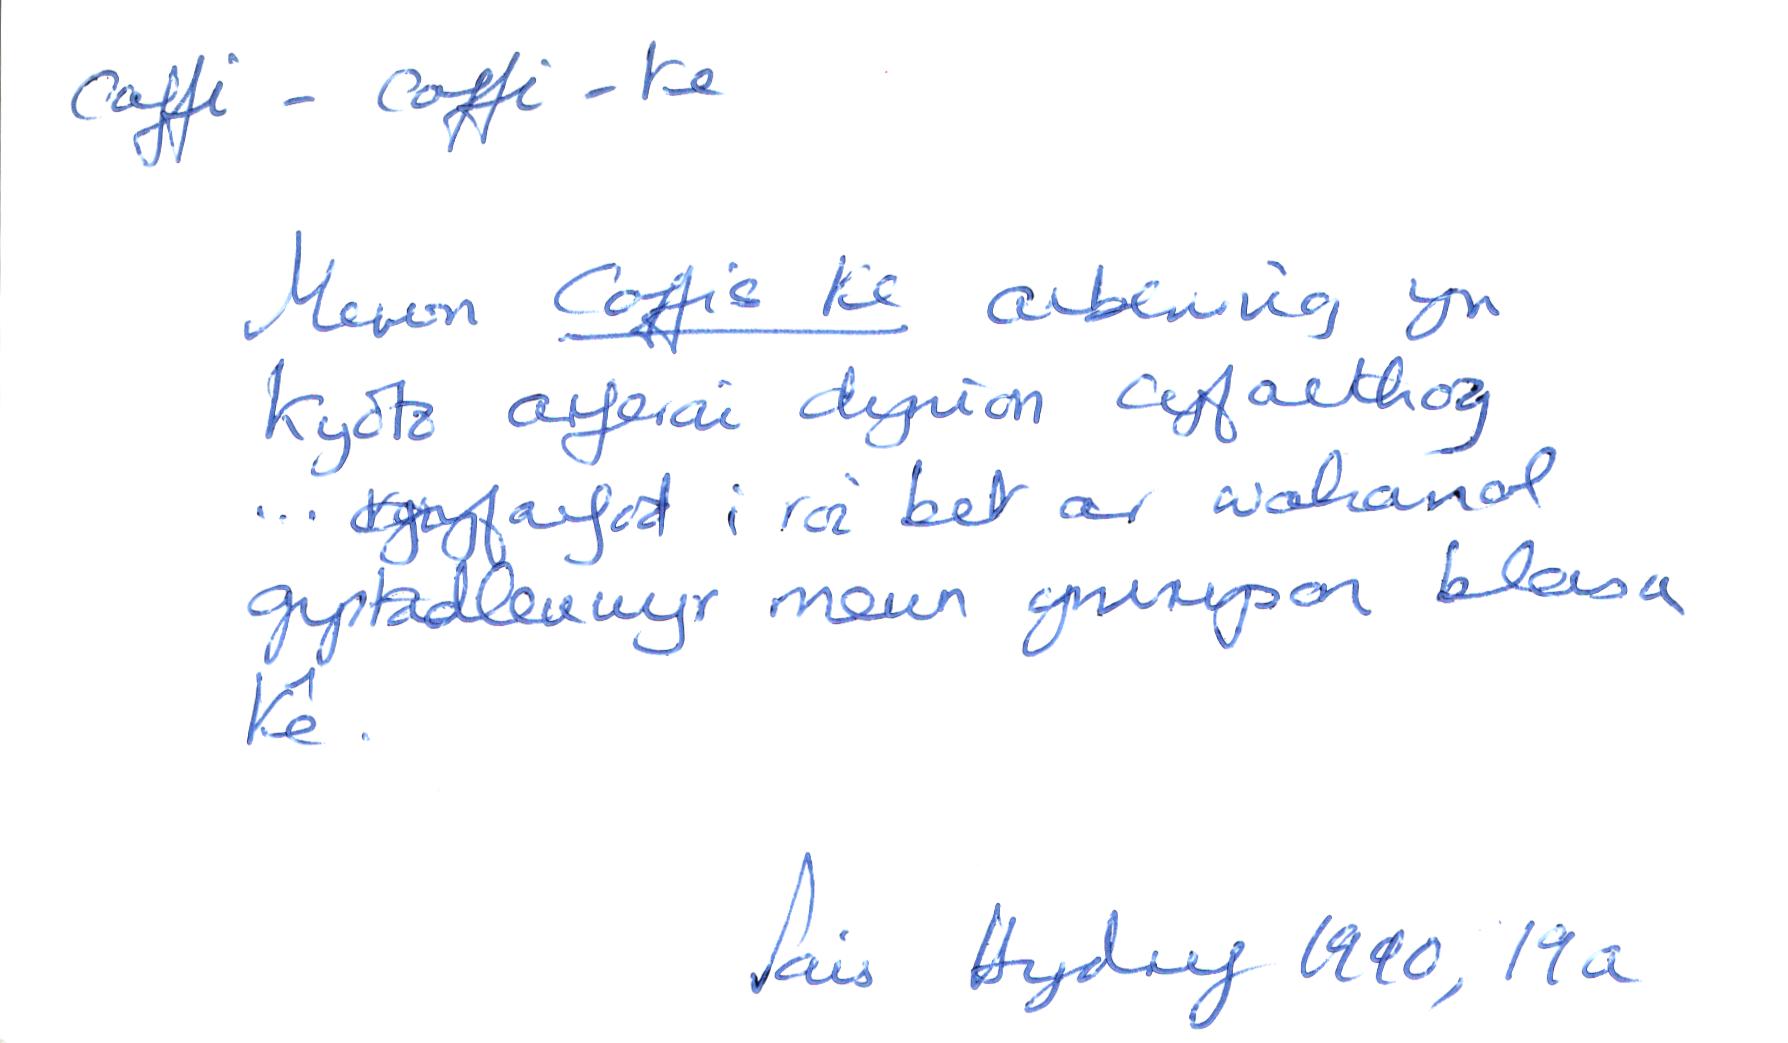 Caffi - Coffi - Ke
Mewn Coffie Ke arbennig yn
Kyoto arferai dynion cyfoethog
... gyfarfod i roi bet ar wahanol
gystadleuwyr mewn gornest blasu
Ke.
Llais Hydref 1990, 19a